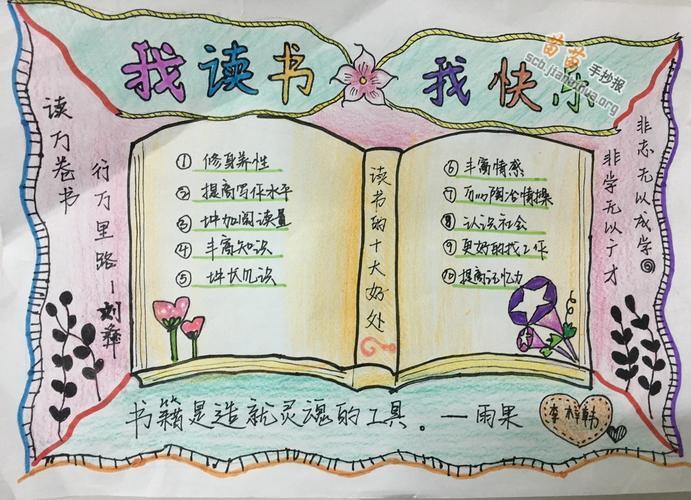 我读书
我快乐
苗苗
手抄报
读万卷书
行万里路—刘彝
① 修身养性
② 提高写作水平
③ 增加阅读量
④ 丰富知识
⑤ 增长见识
读书的十大好处?
⑥ 丰富情感
⑦ 可以陶冶情操
⑧ 认识社会
⑨ 更好的找工作
⑩ 提高记忆力
非学无以广才
非志无以成学。
书籍是造就灵魂的工具。—雨果